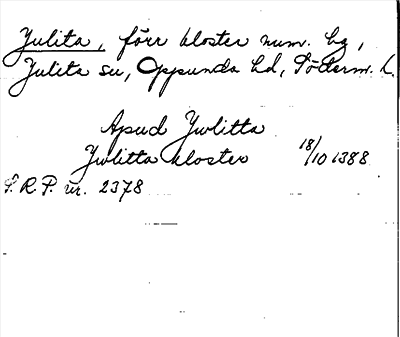 Julita, förr kloster num. bg,
Julita sn, Oppunda hd, Söderm. l.
Apud Iwlitta
Iwlitta kloster 18/10 1388
S.R.P. nr. 2378